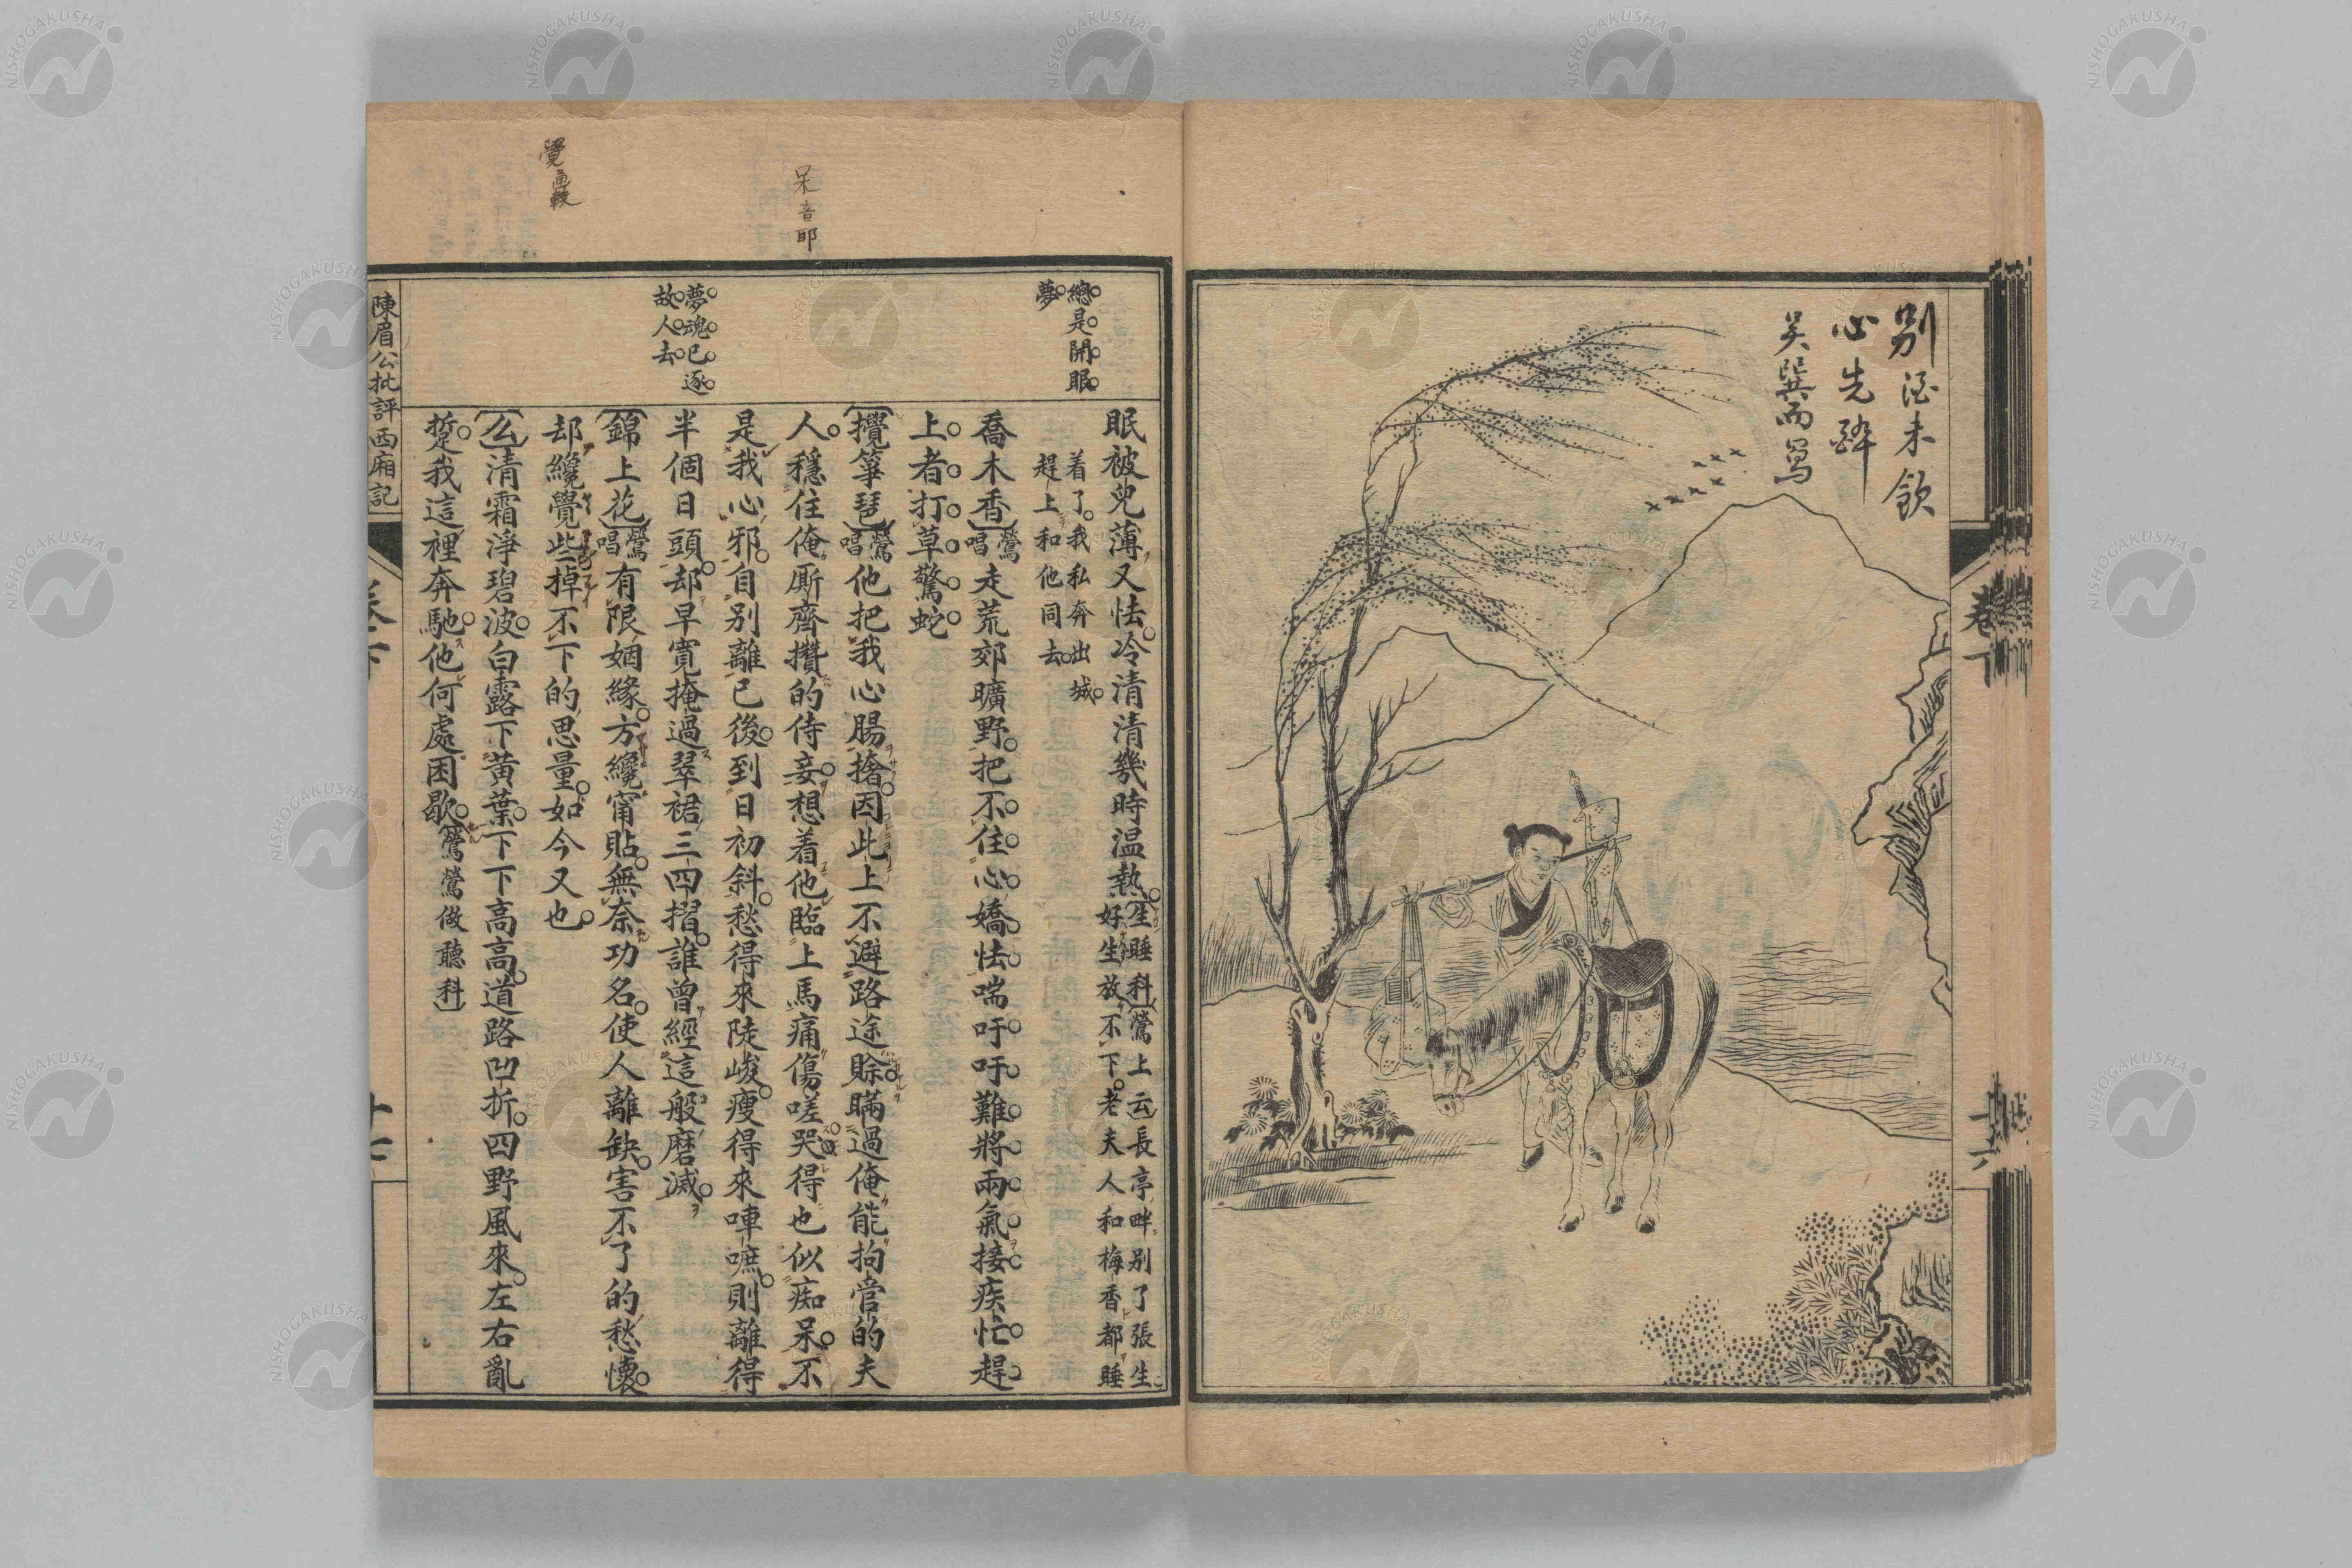 別酒未飲
心先醉
吴巽而寫
卷下
十六
總是開眼
夢
夢魂已逐
故人去
呆音耶
覺音較
眠被兒薄又怯冷清清幾時温熱(生睡科)(鶯上云)長亭畔别了張生
好生放不下老夫人和梅香都睡
着了我私奔出城
趕上和他同去
喬木香(鶯唱)走荒郊曠野把不住心嬌怯喘吁吁難將兩氣接疾忙趕
上者打草驚蛇
(攪箏琶)(鶯唱)他把我心腸搶因此上不避路途賒瞞過俺能拘管的夫
人穩住俺厮齊攢的侍妾想着他臨上馬痛傷嗟哭得也似痴呆不
是我心邪自别離已後到日初斜愁得來陡峻瘦得來唓嗻則離得
半個日頭却早寛掩過翠裙三四摺誰曾經這般磨滅
(錦上花)(鶯唱)有限姻緣方纔甯貼無奈功名使人離缺害不了的愁懷
却纔覺些掉不下的思量如今又也
(么)清霜淨碧波白露下黄葉下下高高道路凹折四野風來左右亂
踅我這裡奔馳他何處困歇(鶯鶯做聽科)
陳眉公批評西廂記
卷下
十七
NISHOGAKUSHA